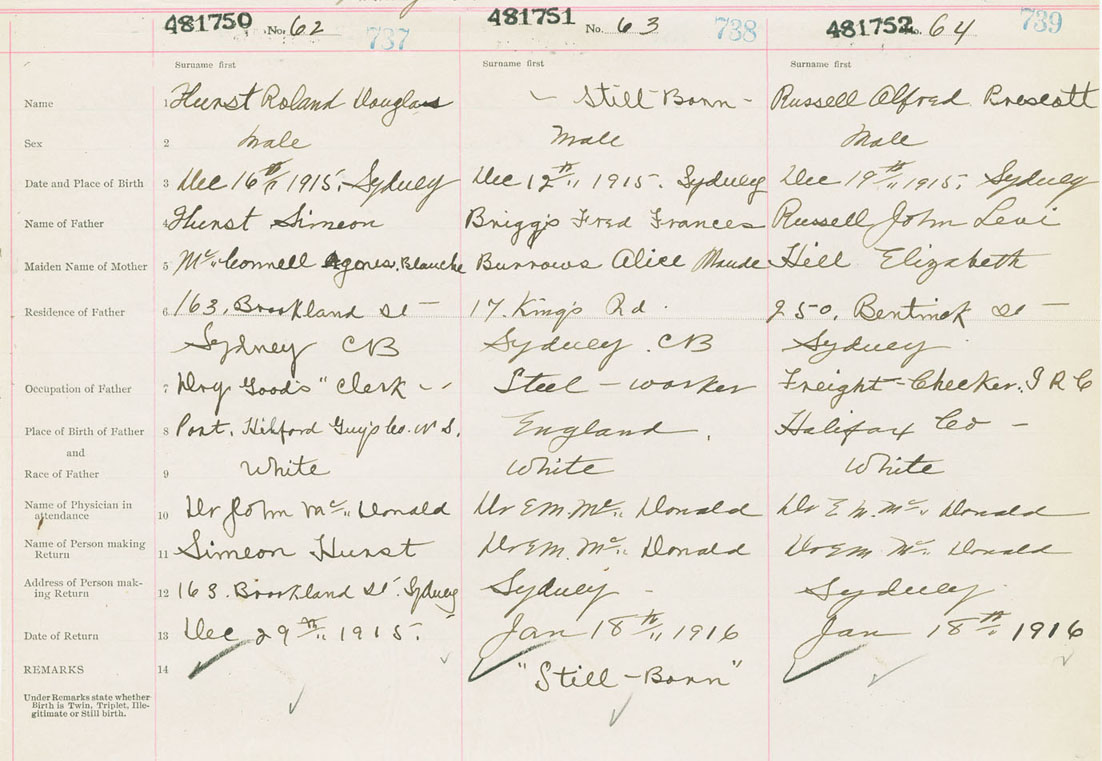 481750 No. 62 737 481751 No. 63 738 481752 No. 64 739
Surname first Surname first Surname first
Name 1 Hurst Roland Douglas - Still Born - Russell Alfred Prescott
Sex 2 Male Male Male
Date and Place of Birth 3 Dec 16th 1915, Sydney Dec 12th 1915. Sydney Dec 19th 1915, Sydney
Name of Father 4 Hurst Simeon Briggs Fred Frances Russell John Levi
Maiden Name of Mother 5 McConnell Agnes, Blanche Burrows Alice Maude Hill Elizabeth
Residence of Father 6 163, Brookland St - 17. Kings Rd. 250, Bentinck St -
Sydney CB Sydney. CB Sydney
Occupation of Father 7 Dry "Goods" Clerk - - Steel - worker Freight - Checker. I R C
Place of Birth of Father 8 Port. Hilford Guy's Co. N S. England. Halifax Co -
and
Race of Father 9 White White White
Name of Physician in
attendance 10 Dr John Mc Donald Dr E M. Mc Donald Dr E M. Mc Donald
Name of Person making
Return 11 Simeon Hurst Dr E M. Mc Donald Dr E M Mc Donald
Address of Person mak-
ing Return 12 163. Brookland St Sydney Sydney - Sydney
Date of Return 13 Dec 29th 1915. Jan 18th 1916 Jan 18th 1916
REMARKS 14 "Still - Born"
Under Remarks state whether
Birth is Twin, Triplet, Ille-
gitimate or Still birth.